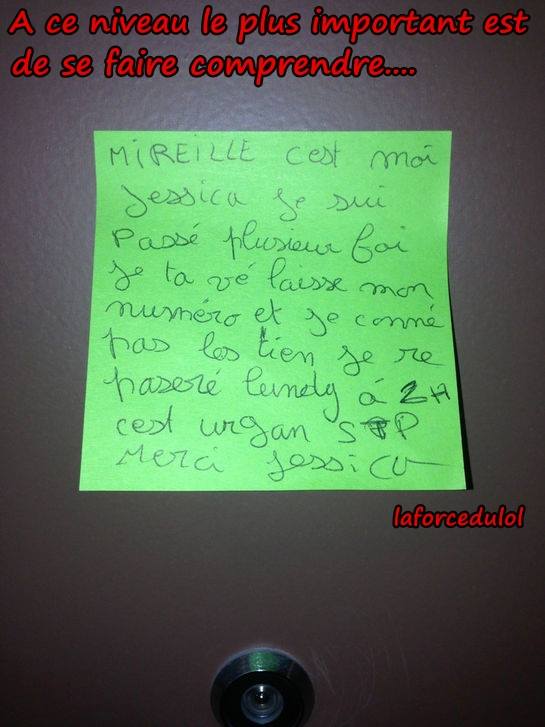 A ce niveau le plus important est
de se faire comprendre....
MIREILLE cest moi
Jessica Je sui
Passé plusieur foi
Je ta vé laisse mon
numéro et Je conné
pas les tien Je re
paseré lundy á 2H
cest urgan STP
Merci Jessica
laforcedulol